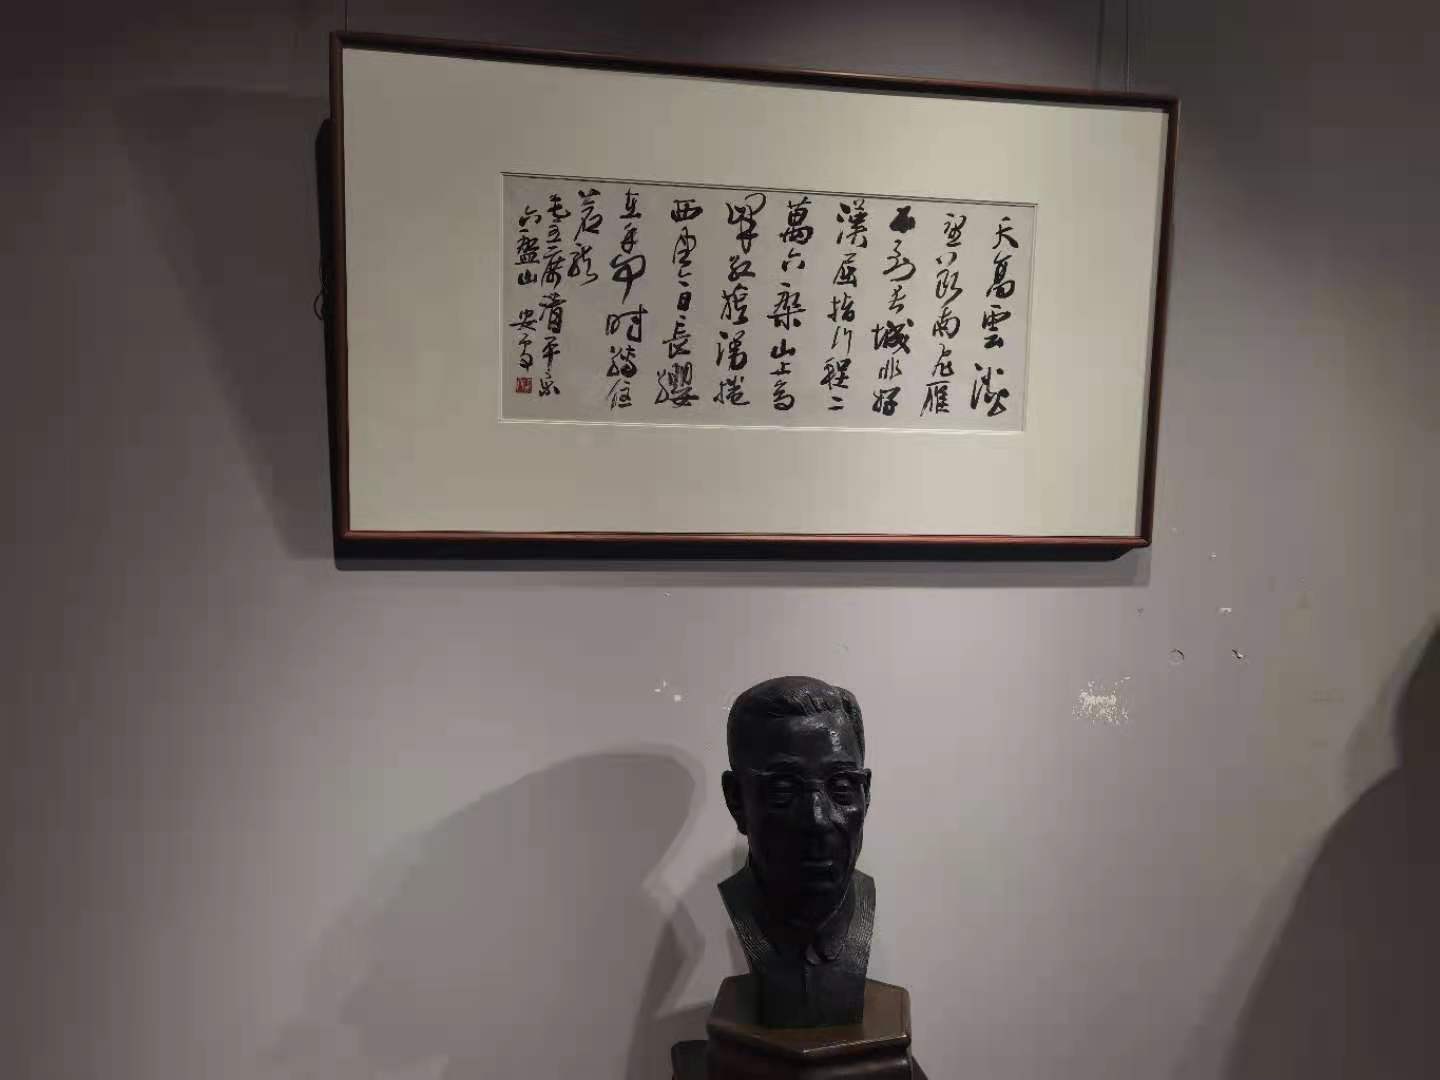 天高雲淡
望断南飛雁
不到長城非好
漢屈指行程二
萬六槃山上高
峰紅旗漫捲
西風今日長纓
在手何时縛住
蒼龍
毛主席清平樂
六盤山 安